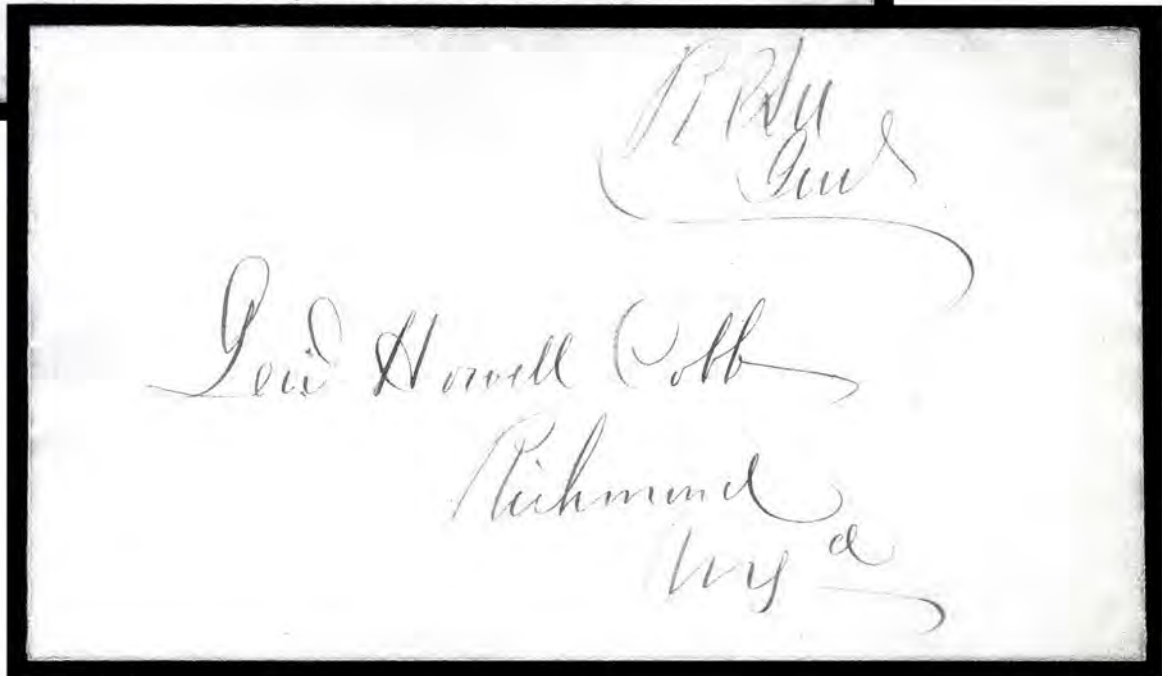 Genl
Genl Howell Cobb
Richmond
Va